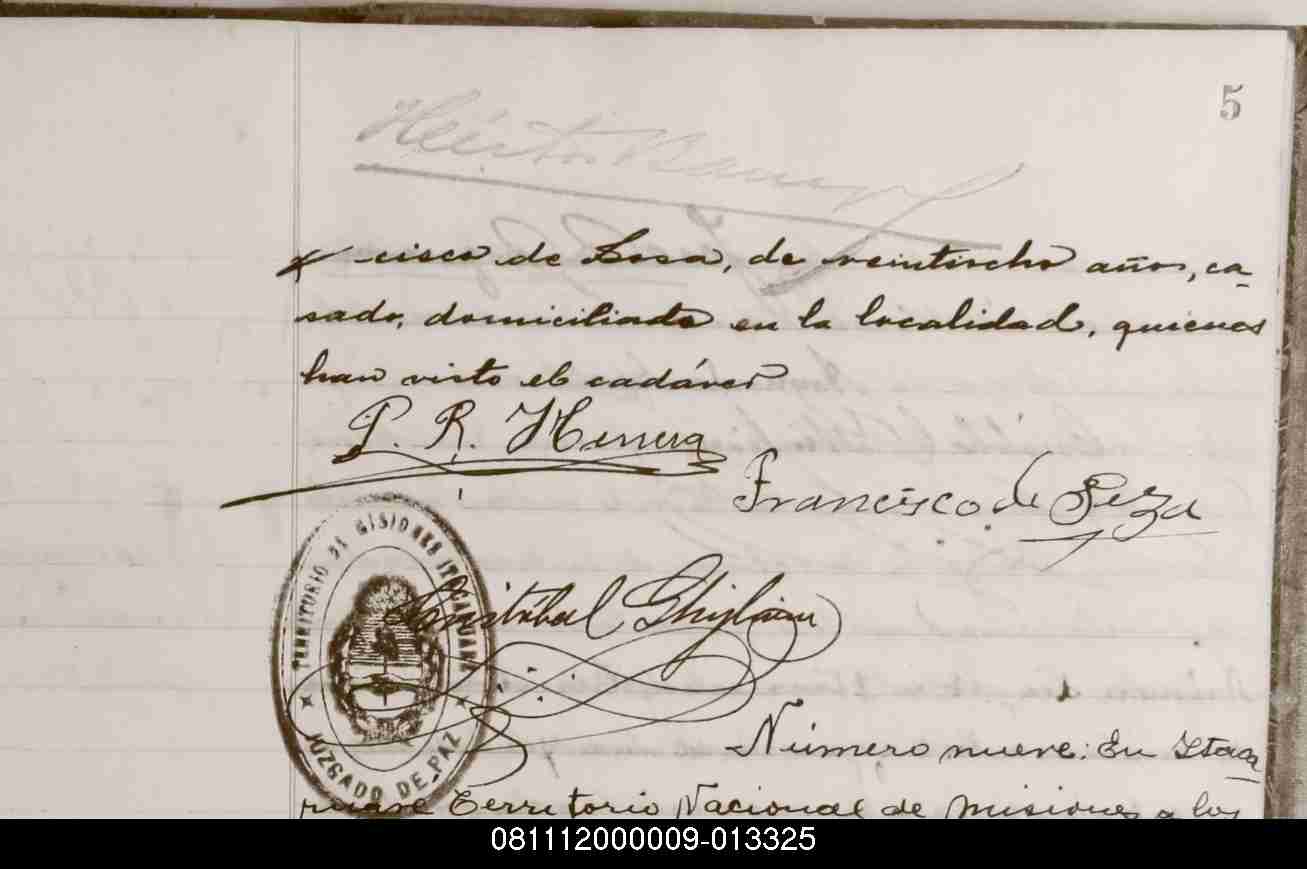 5
Héctor
cisco de Sosa, de veintiocho años, ca-
sado, domiciliado en la localidad, quienes
han visto el cadáver
P. R. Herrera
Francisco de
TERRITORIO DE MISIONES ITACARUARÉ
JUZGADO DE PAZ
Cristóbal
Número nueve: En Itaca
ruaré Territorio Nacional de Misiones a los
081112000009-013325